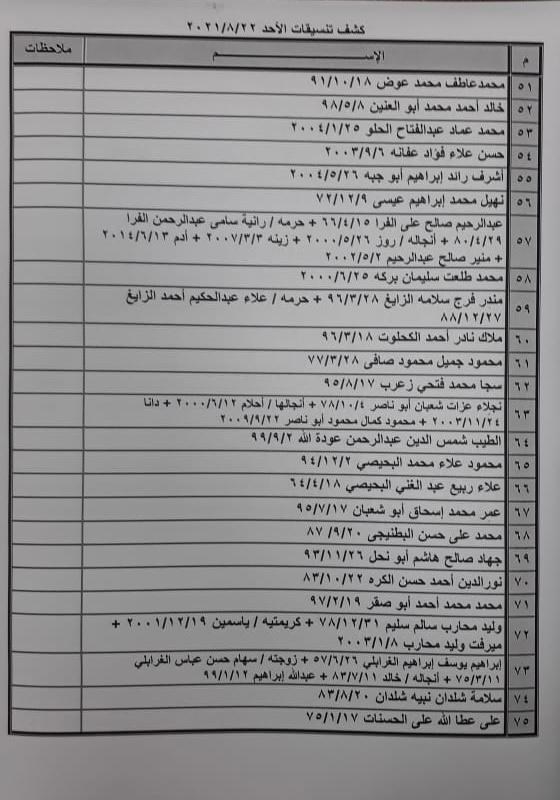 كشف تنسيقات الأحد ٢٠٢١/٨/٢٢
م الإســـــم ملاحظات
٥١ محمدعاطف محمد عوض ٩١/١٠/١٨
٥٢ خالد أحمد محمد أبو العنين ٩٨/٥/٨
٥٣ محمد عماد عبدالفتاح الحلو ٢٠٠٤/١/٢٥
٥٤ حسن علاء فؤاد عفانه ٢٠٠٣/٩/٦
٥٥ أشرف رائد إبراهيم أبو جبه ٢٠٠٤/٥/٢٦
٥٦ نهيل محمد إبراهيم عيسى ٧٢/١٢/٩
٥٧ عبدالرحيم صالح على الفرا ٦٦/٤/١٥ + حرمه / رانية سامى عبدالرحمن الفرا
٨٠/٤/٢٩ + أنجاله / روز ٢٠٠٠/٥/٢٦ + زينه ٢٠٠٧/٣/٣ + أدم ٢٠١٤/٦/١٣
+ منير صالح عبدالرحيم ٢٠٠٢/٥/٢
٥٨ محمد طلعت سليمان بركه ٢٠٠٠/٦/٢٥
٥٩ منذر فرج سلامه الزايغ ٩٦/٣/٢٨ + حرمه / علاء عبدالحكيم أحمد الزايغ
٨٨/١٢/٢٧
٦٠ ملاك نادر أحمد الكحلوت ٩٦/٣/١٨
٦١ محمود جميل محمود صافى ٧٧/٣/٢٨
٦٢ سجا محمد فتحي زعرب ٩٥/٨/١٧
٦٣ نجلاء عزات شعبان أبو ناصر ٧٨/١٠/٤ + أنجالها / أحلام ٢٠٠٠/٦/١٢ + دانا
٢٠٠٣/١١/٢٤ + محمود كمال محمود أبو ناصر ٢٠٠٩/٩/٢٢
٦٤ الطيب شمس الدين عبدالرحمن عودة الله ٩٩/٩/٢
٦٥ محمود علاء محمد البحيصي ٩٤/١٢/٢
٦٦ علاء ربيع عبد الغني البحيصي ٦٤/٤/١٨
٦٧ عمر محمد إسحاق أبو شعبان ٩٥/٧/١٧
٦٨ محمد على حسن البطنيجى ٨٧ /٩/٢٠
٦٩ جهاد صالح هاشم أبو نحل ٩٣/١١/٢٦
٧٠ نورالدين أحمد حسن الكره ٨٣/١٠/٢٢
٧١ محمد محمد أحمد أبو صقر ٩٧/٢/١٩
٧٢ وليد محارب سالم سليم ٧٨/١٢/٣١ + كريمتيه / ياسمين ٢٠٠١/١٢/١٩ +
ميرفت وليد محارب ٢٠٠٣/١/٨
٧٣ إبراهيم يوسف إبراهيم الغرابلي ٥٧/٦/٢٦ + زوجته / سهام حسن عباس الغرابلي
٧٥/٣/١١ + أنجاله / خالد ٨٣/٧/١١ + عبدالله إبراهيم ٩٩/١/١٢
٧٤ سلامة شلدان نبيه شلدان ٨٣/٨/٢٠
٧٥ على عطا الله على الحسنات ٧٥/١/١٧